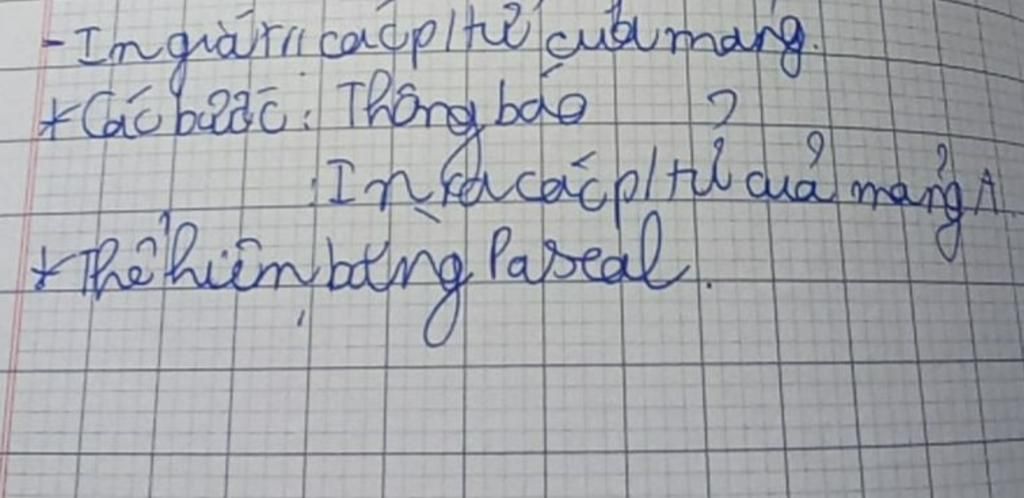 - In giá trị các p/tử của mảng.
* Các bước: Thông báo
: In ra các p/tử của mảng A
* Thể hiện bằng Pascal.